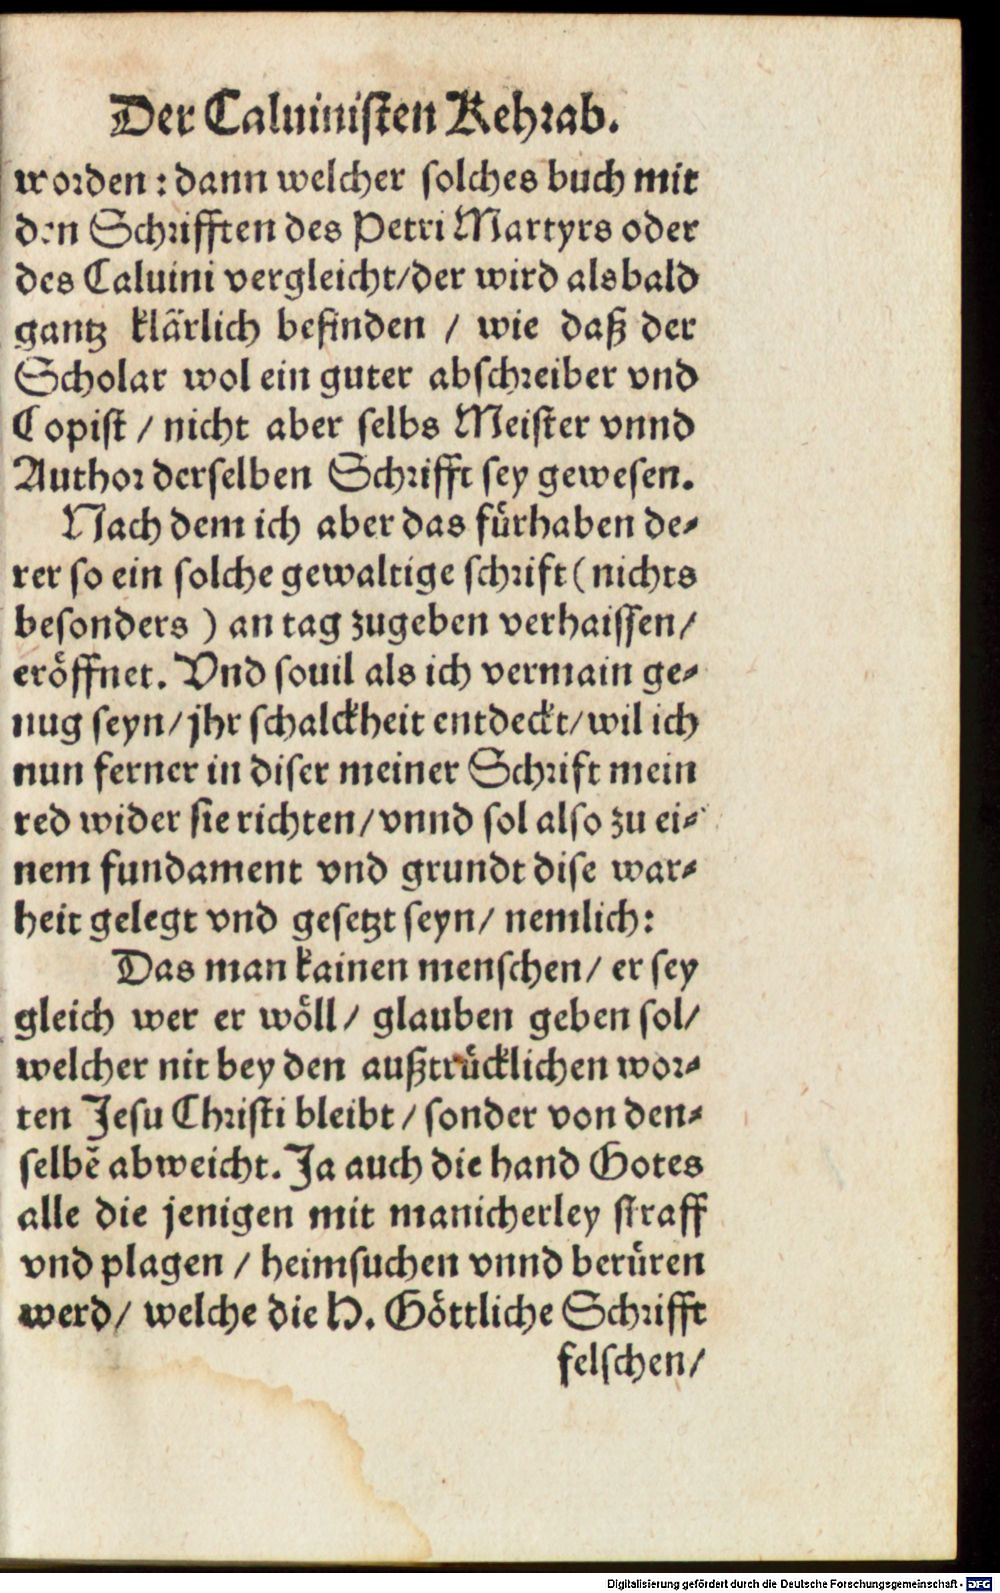 Der Caluinisten Kehrab.
worden: dann welcher solches buch mit
den Schrifften des Petri Martyrs oder
des Caluini vergleicht/der wird alsbald
gantz klärlich befinden / wie daß der
Scholar wol ein guter abschreiber vnd
Copist / nicht aber selbs Meister vnnd
Author derselben Schrifft sey gewesen.
Nach dem ich aber das fürhaben de-
rer so ein solche gewaltige schrift (nichts
besonders ) an tag zugeben verhaissen/
eröffnet. Vnd souil als ich vermain ge-
nug seyn/jhr schalckheit entdeckt/wil ich
nun ferner in diser meiner Schrift mein
red wider sie richten/vnnd sol also zu ei-
nem fundament vnd grundt dise war-
heit gelegt vnd gesetzt seyn/ nemlich:
Das man kainen menschen/ er sey
gleich wer er wöll/ glauben geben sol/
welcher nit bey den außtrücklichen wor-
ten Jesu Christi bleibt/sonder von den-
selbē abweicht. Ja auch die hand Gotes
alle die jenigen mit manicherley straff
vnd plagen / heimsuchen vnnd berüren
werd/ welche die H. Göttliche Schrifft
felschen/
Digitalisierung gefördert durch die Deutsche Forschungsgemeinschaft - DFG